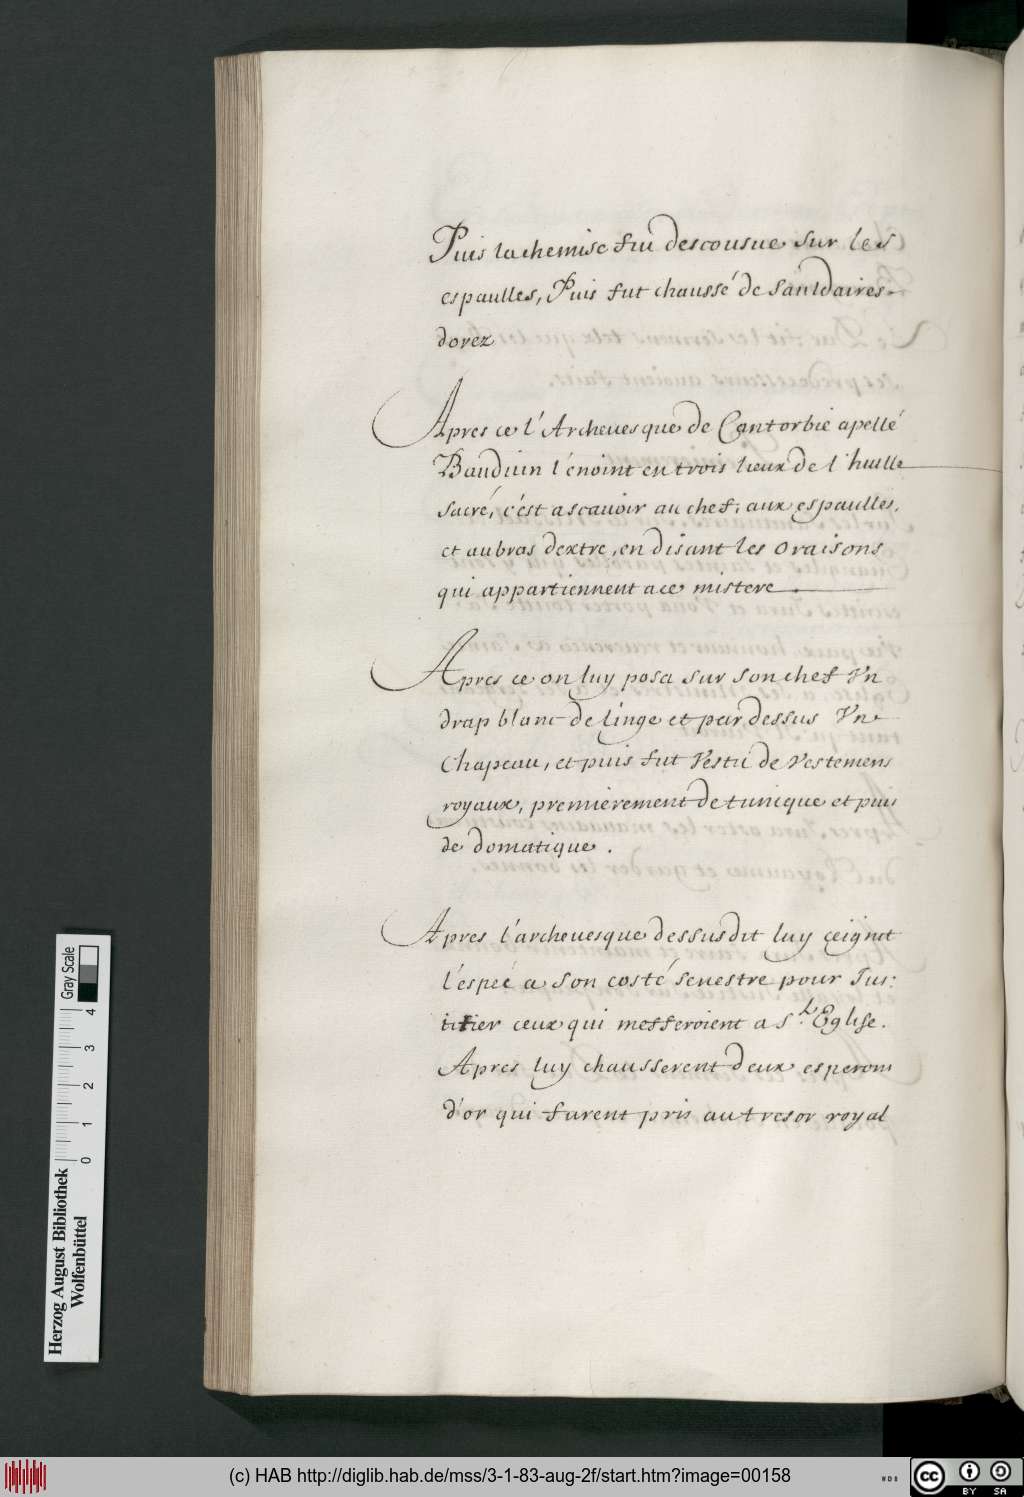 Puis la chemise fut descousue sur les
espaulles, Puis fut chaussé de sanldaires
dorez
Apres ce l'Archeuesque de Cantorbie apellé
Bauduin l'enoint en trois lieux de l'huille
sacré, c'est ascauoir au chef, aux espaulles,
et au bras dextre, en disant les Oraisons
qui appartiennent a ce mistere.
Apres ce on luy posa sur son chef Vn
drap blanc de linge et par dessus Vn
Chapeau, et puis fut Vestu de Vestemens
royaux, premierement de tunique et puis
de domatique.
Apres l'archeuesque dessusdit luy ceignit
l'espée a son costé senestre pour Jus:
titier ceux qui mefferoient a S.te Eglise.
Apres luy chausserent deux esperons
d'or qui furent pris au tresor royal
Herzog August Bibliothek
Wolfenbüttel
Gray Scale
0 1 2 3 4
(c) HAB http://diglib.hab.de/mss/3-1-83-aug-2f/start.htm?image=00158
WDB
cc BY SA